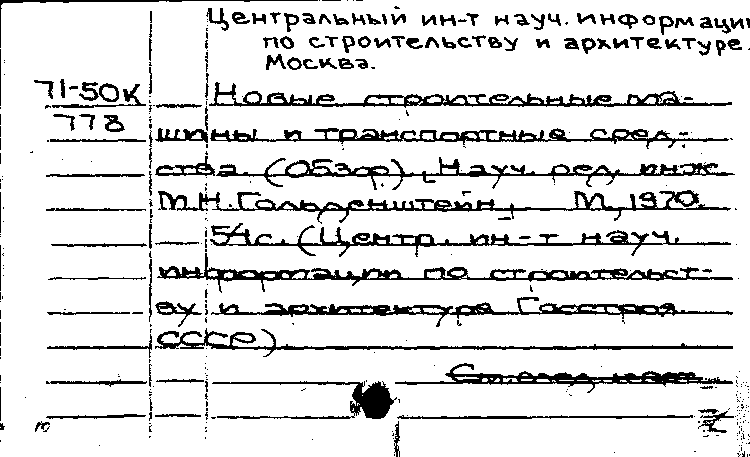 Центральный ин-т науч. информации
по строительству и архитектуре.
Москва.
71-50к Новые строительные ма-
778 шины и транспортные сред-
ства. (Обзор). [Науч. ред. инж.
М.Н. Гольденштейн]. М., 1970.
54 с. (Центр. ин-т науч.
информации по строительст-
ву и архитектуре Госстроя
СССР)
См. след. карт.
ю